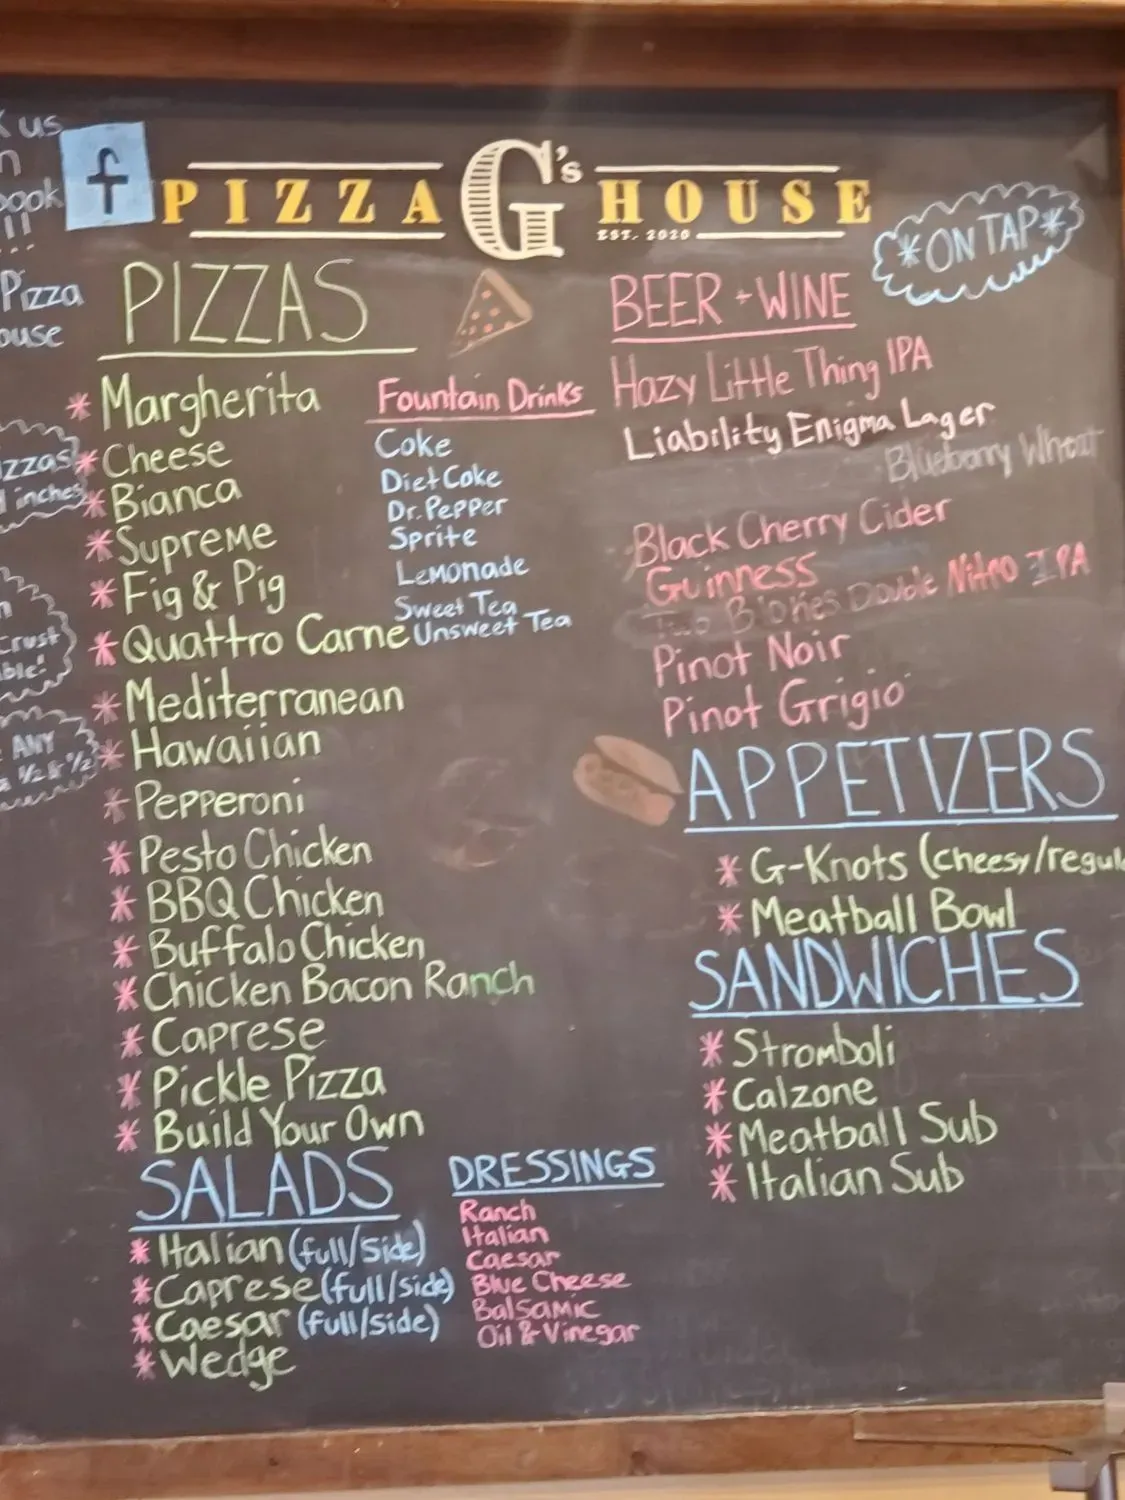 us
PIZZA G's HOUSE
EST. 2020
*ON TAP*
Pizza
PIZZAS
* Margherita
* Cheese
* Bianca
* Supreme
* Fig & Pig
* Quattro Carne
* Mediterranean
* Hawaiian
* Pepperoni
* Pesto Chicken
* BBQ Chicken
* Buffalo Chicken
* Chicken Bacon Ranch
* Caprese
* Pickle Pizza
* Build Your Own
Fountain Drinks
Coke
Diet Coke
Dr. Pepper
Sprite
Lemonade
Sweet Tea
Unsweet Tea
BEER + WINE
Hazy Little Thing IPA
Liability Enigma Lager
Blueberry Wheat
Black Cherry Cider
Guinness
Double Nitro IPA
Pinot Noir
Pinot Grigio
APPETIZERS
* G-Knots (cheesy/regul
* Meatball Bowl
SANDWICHES
* Stromboli
* Calzone
* Meatball Sub
* Italian Sub
SALADS
* Italian (full/side)
* Caprese (full/side)
* Caesar (full/side)
* Wedge
DRESSINGS
Ranch
Italian
Caesar
Blue Cheese
Balsamic
Oil & Vinegar
inches
Crust
ANY
1/2 & 1/2